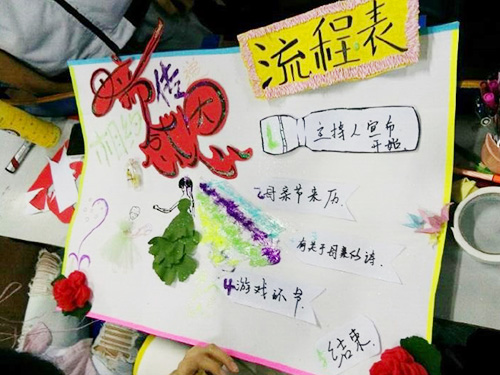 流程表
主持人宣布
开始
2母亲节来历
有关于母亲的诗.
4游戏环节
结束.